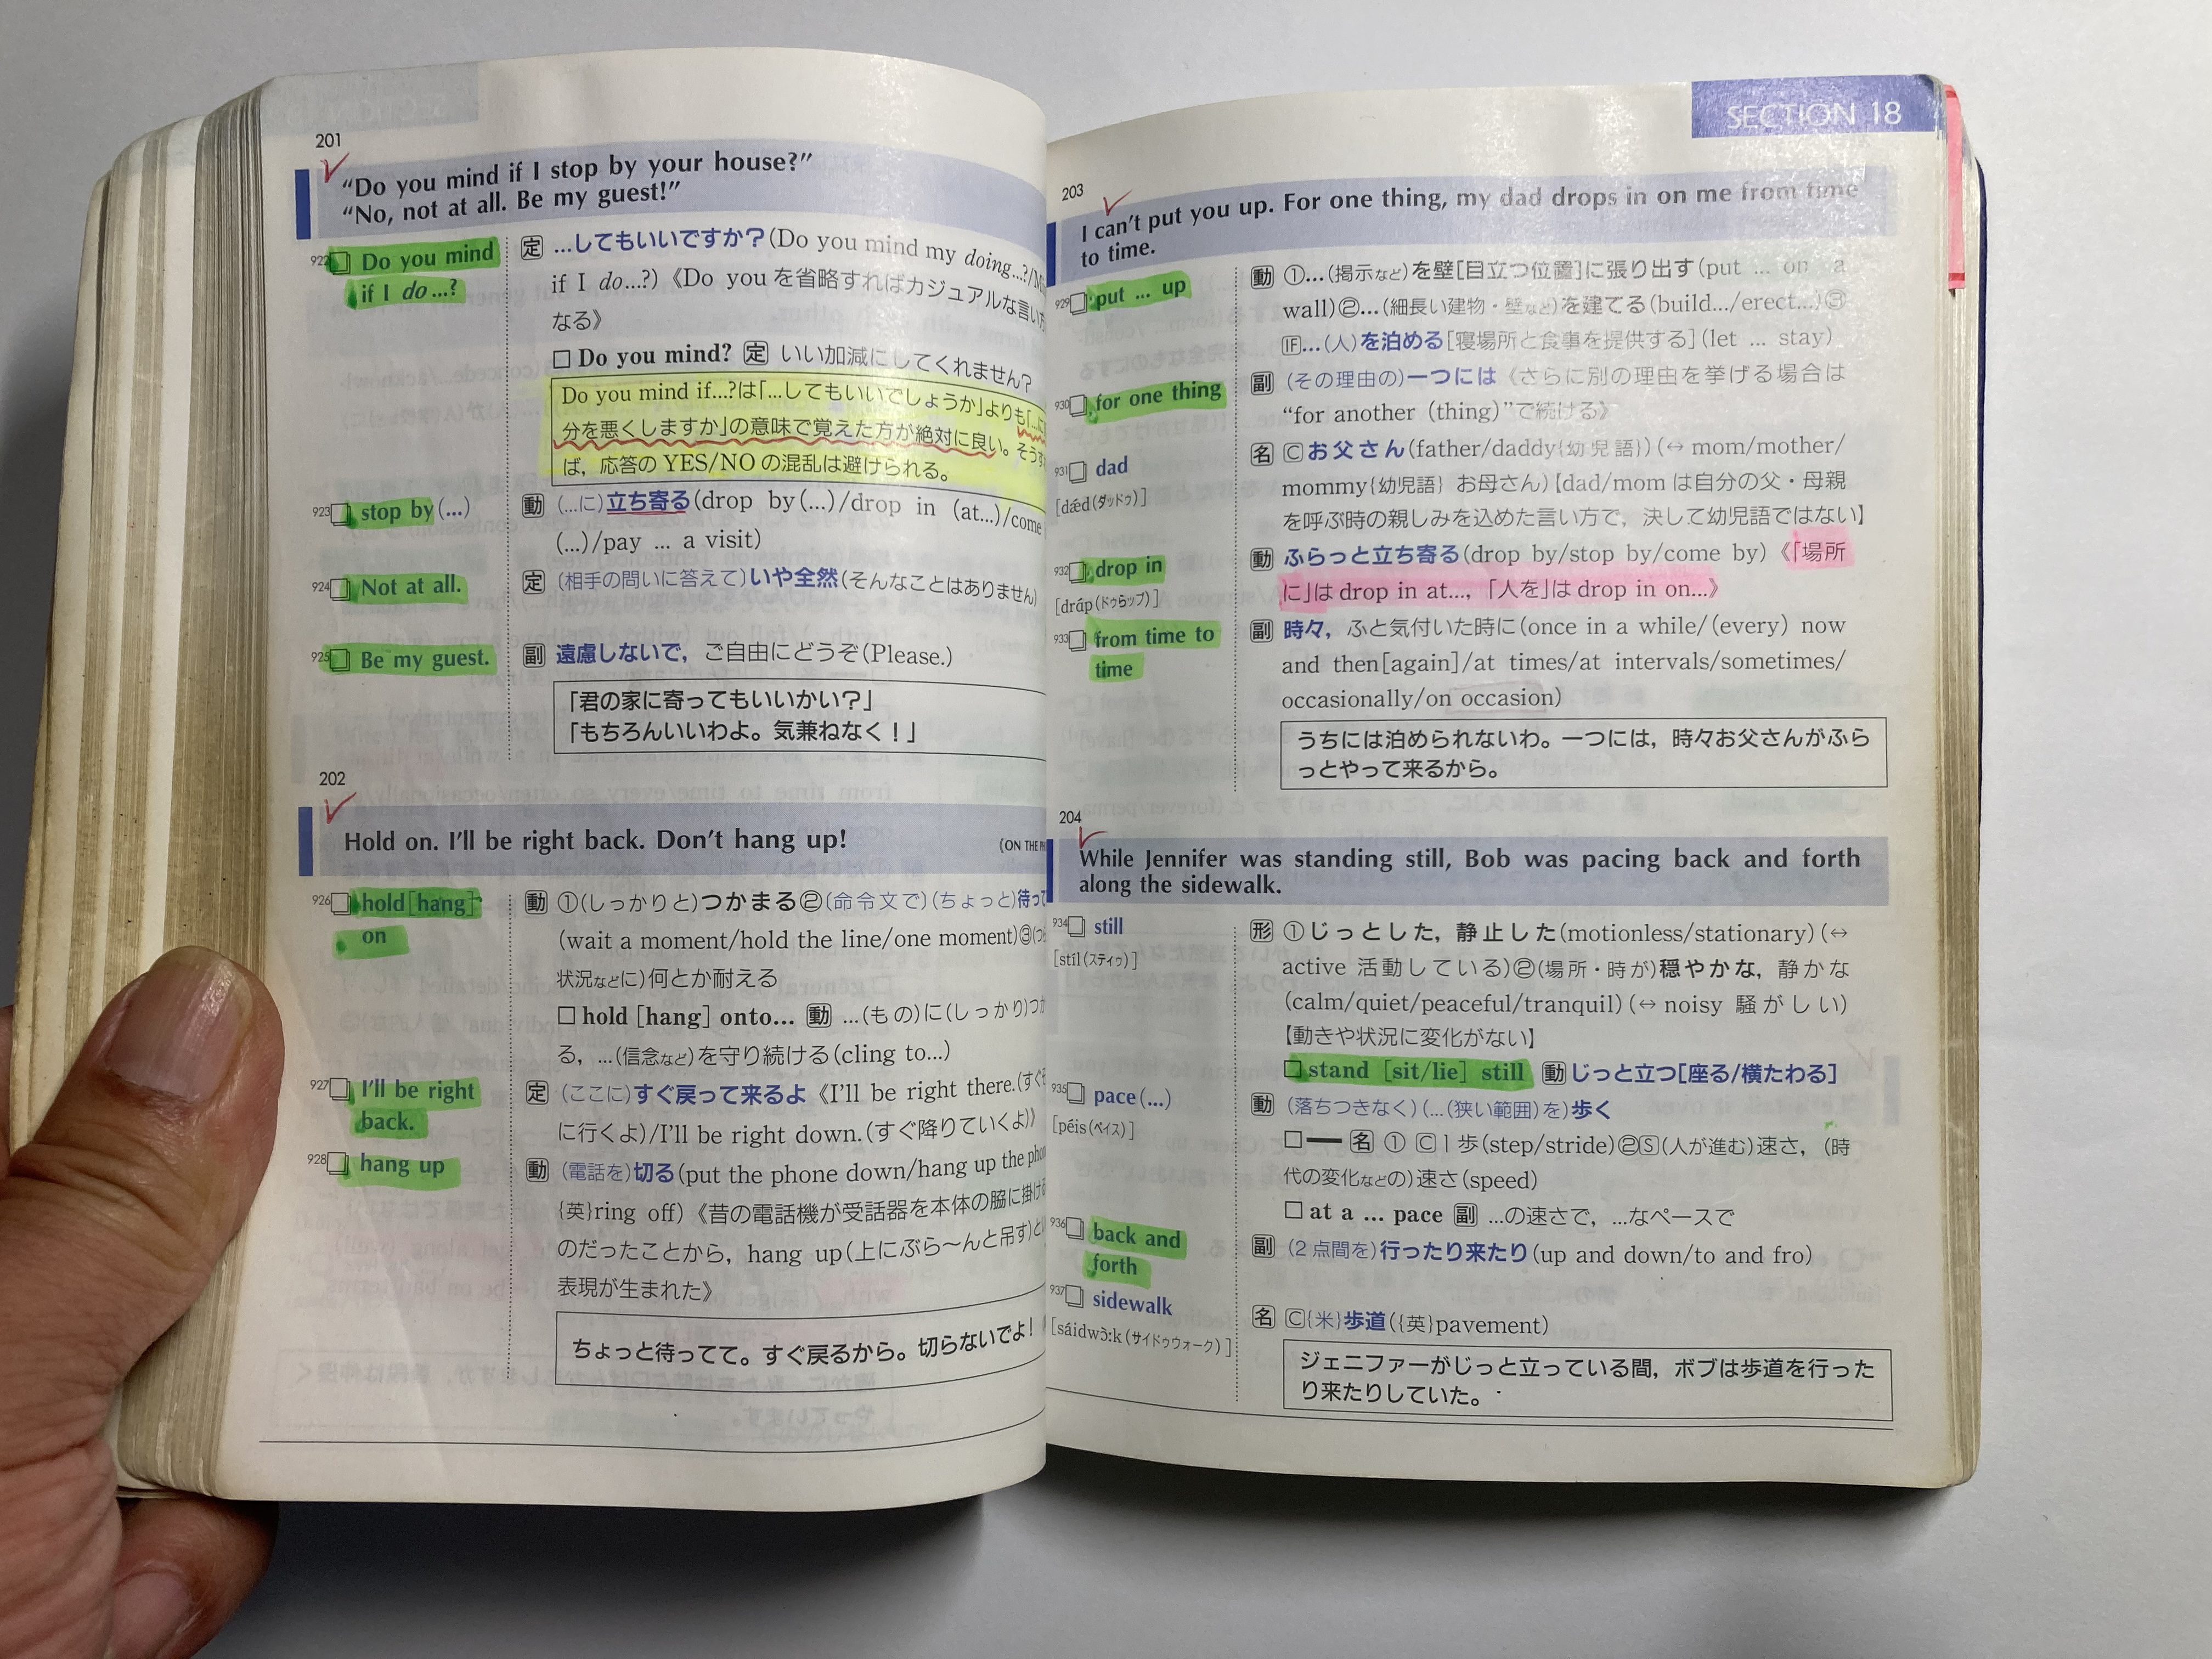 201
"Do you mind if I stop by your house?"
"No, not at all. Be my guest!"
922 □ Do you mind
if I do ...?
定 …してもいいですか?(Do you mind my doing...?/
if I do...?)《Do you を省略すればカジュアルな言い方
なる》
□ Do you mind? 定 いい加減にしてくれません?
Do you mind if...?は「…してもいいでしょうか」よりも「…
分を悪くしますか」の意味で覚えた方が絶対に良い。そう
ば,応答の YES/NO の混乱は避けられる。
923 □ stop by(...)
動 (…に)立ち寄る(drop by(...)/drop in (at...)/come
(...)/pay ... a visit)
924 □ Not at all.
定 (相手の問いに答えて)いや全然(そんなことはありません)
925 □ Be my guest.
副 遠慮しないで,ご自由にどうぞ(Please.)
「君の家に寄ってもいいかい?」
「もちろんいいわよ。気兼ねなく!」
202
Hold on. I'll be right back. Don't hang up! (ON THE
926 □ hold[hang]
on
動 ①(しっかりと)つかまる②(命令文で)(ちょっと)待って
(wait a moment/hold the line/one moment)③
状況などに)何とか耐える
□ hold [hang] onto... 動 …(もの)に(しっかり)つか
る,…(信念など)を守り続ける(cling to...)
927 □ I'll be right
back.
定 (ここに)すぐ戻って来るよ《I'll be right there.(すぐそ
に行くよ)/I'll be right down.(すぐ降りていくよ)》
928 □ hang up
動 (電話を)切る(put the phone down/hang up the phone
{英}ring off)《昔の電話機が受話器を本体の脇に掛ける
のだったことから,hang up(上にぶら〜んと吊す)とい
表現が生まれた》
ちょっと待ってて。すぐ戻るから。切らないでよ!
SECTION 18
203
I can't put you up. For one thing, my dad drops in on me from time
to time.
929 □ put ... up
動 ①…(掲示など)を壁[目立つ位置]に張り出す(put ... on a
wall)②…(細長い建物・壁など)を建てる(build.../erect...)③
IF…(人)を泊める[寝場所と食事を提供する](let ... stay)
930 □ for one thing
副 (その理由の)一つには《さらに別の理由を挙げる場合は
"for another (thing)"で続ける》
931 □ dad
[dǽd(ダッドゥ)]
名 Ⓒお父さん(father/daddy{幼児語})(↔ mom/mother/
mommy{幼児語} お母さん)【dad/mom は自分の父・母親
を呼ぶ時の親しみを込めた言い方で,決して幼児語ではない】
932 □ drop in
[dráp(ドゥらップ)]
動 ふらっと立ち寄る(drop by/stop by/come by)《「場所
に」は drop in at...,「人を」は drop in on...》
933 □ from time to
time
副 時々,ふと気付いた時に(once in a while/(every) now
and then[again]/at times/at intervals/sometimes/
occasionally/on occasion)
うちには泊められないわ。一つには,時々お父さんがふら
っとやって来るから。
204
While Jennifer was standing still, Bob was pacing back and forth
along the sidewalk.
934 □ still
[stíl(スティゥ)]
形 ①じっとした,静止した(motionless/stationary)(↔
active 活動している)②(場所・時が)穏やかな,静かな
(calm/quiet/peaceful/tranquil)(↔ noisy 騒がしい)
【動きや状況に変化がない】
□ stand [sit/lie] still 動 じっと立つ[座る/横たわる]
935 □ pace(...)
[péis(ペイス)]
動 (落ちつきなく)(…(狭い範囲)を)歩く
□ ━ 名 ① Ⓒ1歩(step/stride)②Ⓢ(人が進む)速さ,(時
代の変化などの)速さ(speed)
□ at a ... pace 副 …の速さで,…なペースで
936 □ back and
forth
副 (2点間を)行ったり来たり(up and down/to and fro)
937 □ sidewalk
[sáidwɔ̀:k(サイドゥウォーク)]
名 Ⓒ{米}歩道({英}pavement)
ジェニファーがじっと立っている間,ボブは歩道を行った
り来たりしていた。